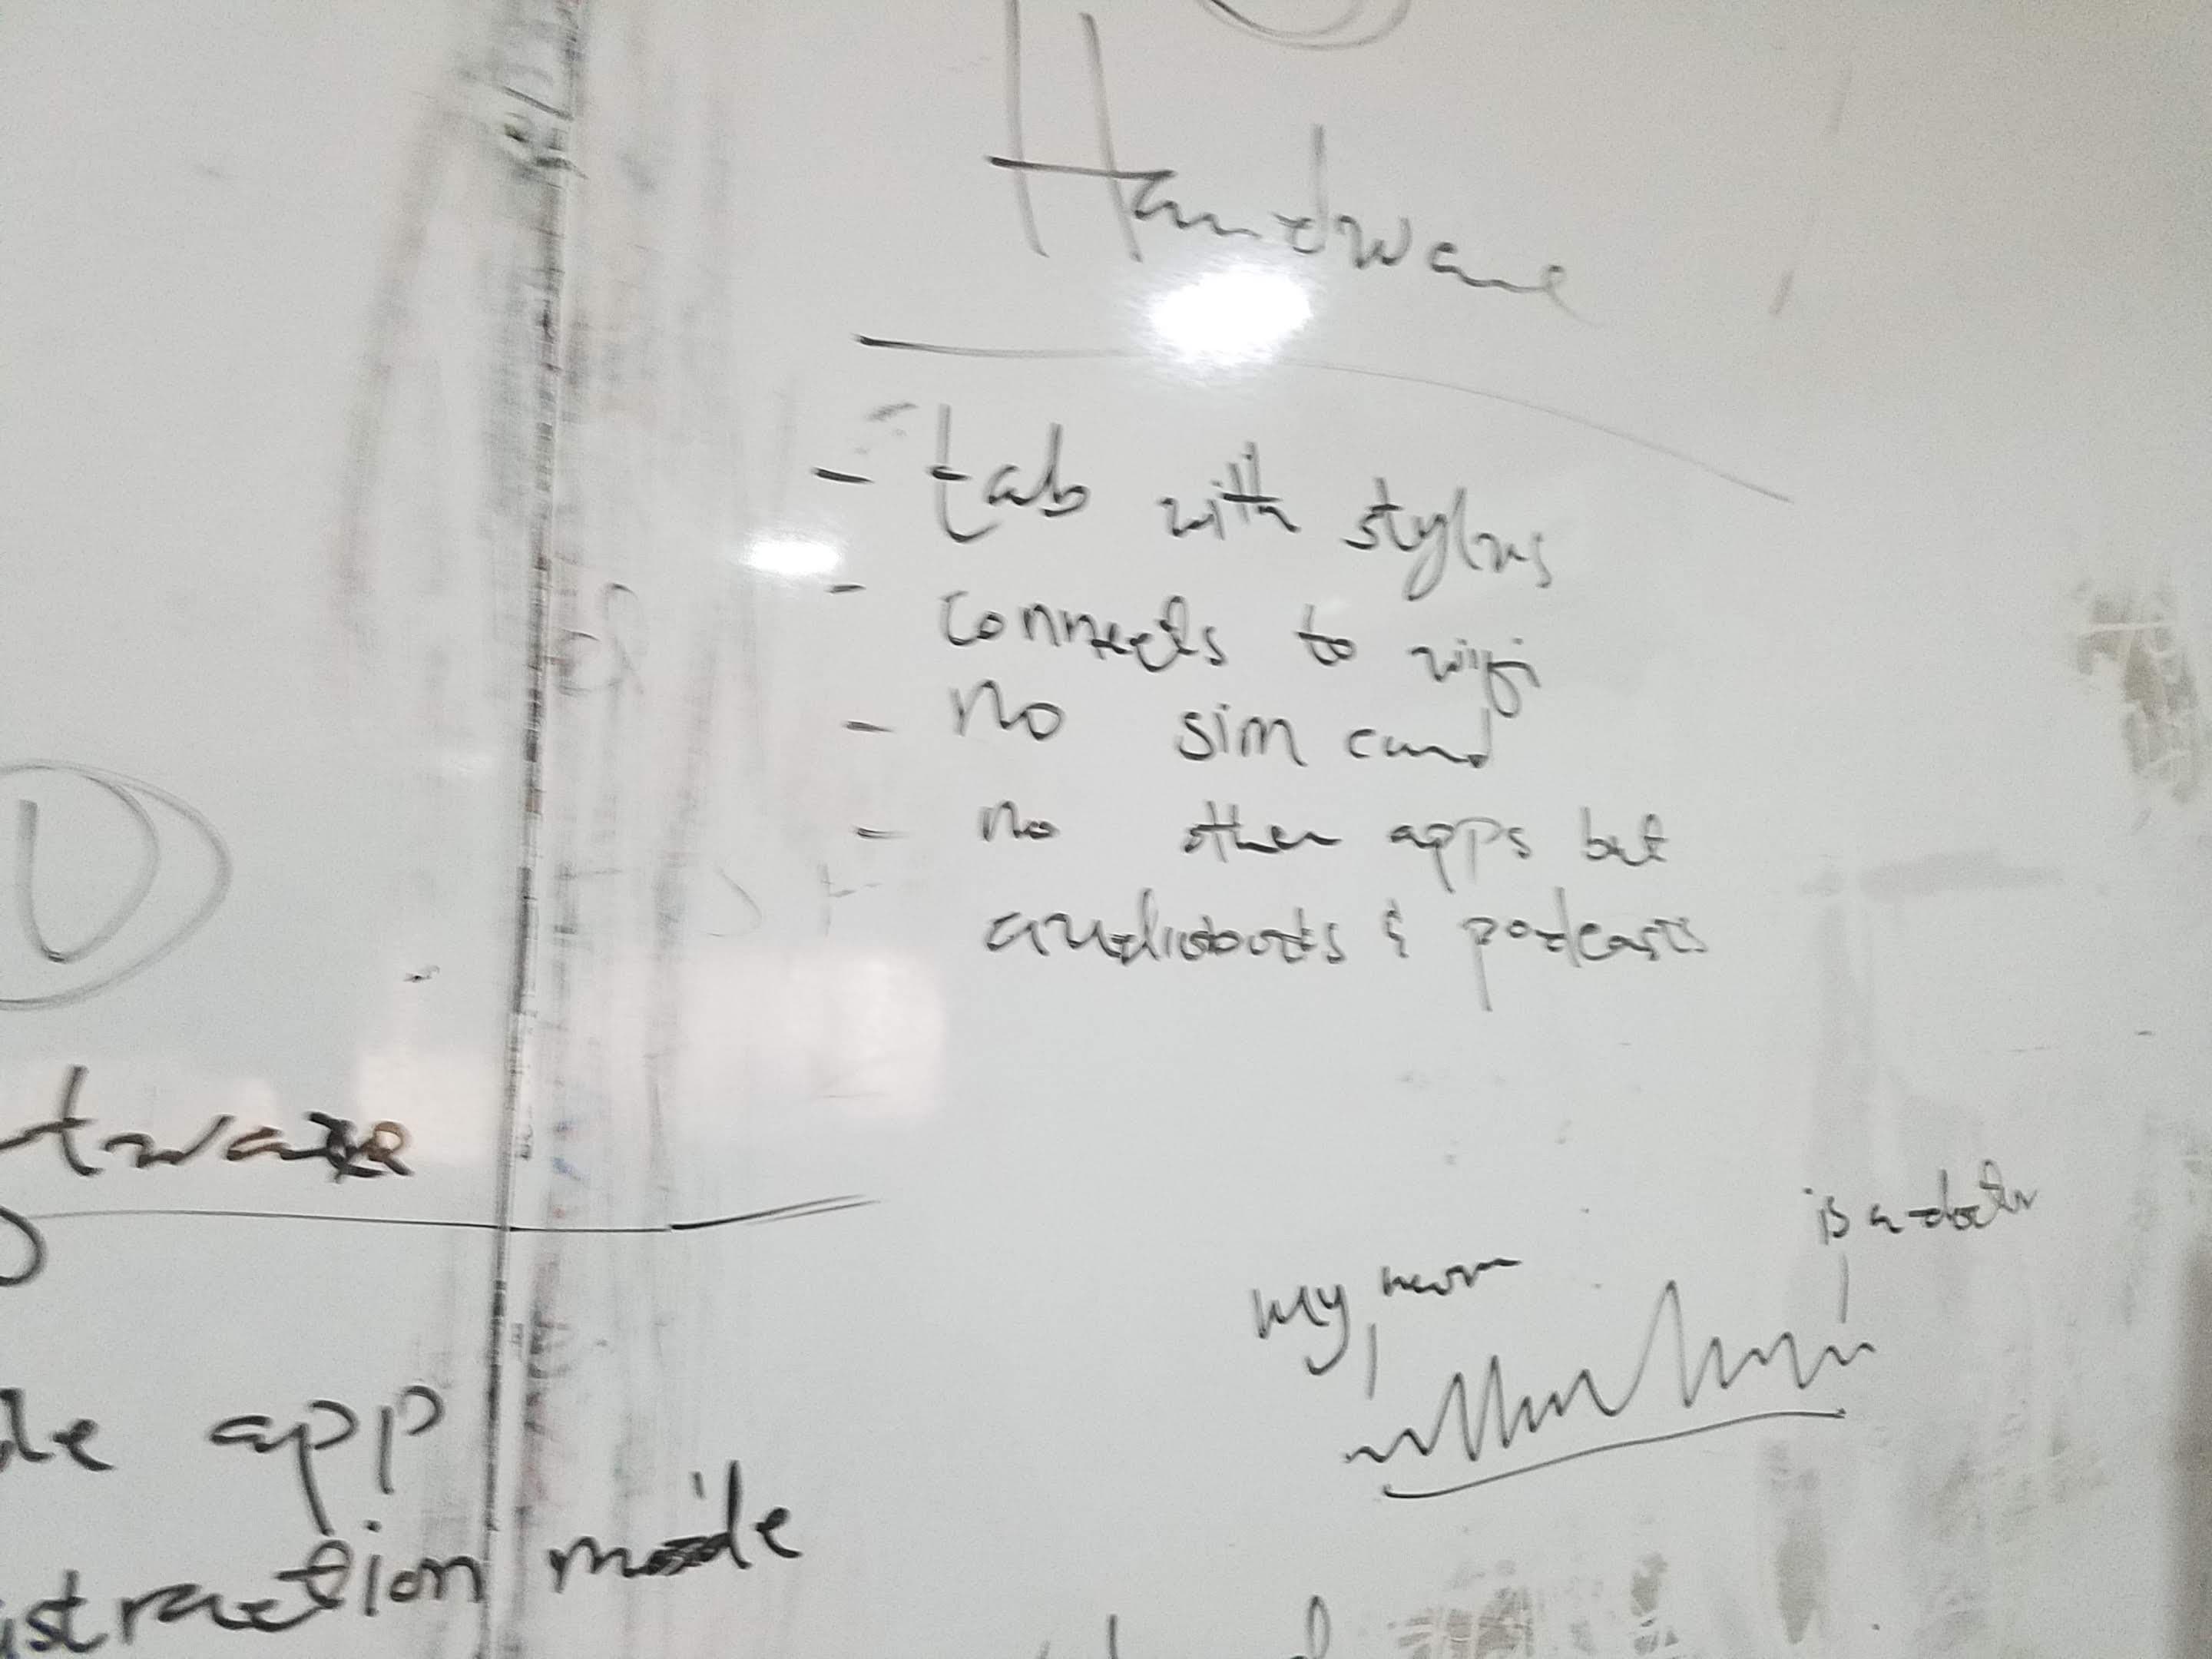 Hardware
- tab with stylus
- connects to wifi
- no sim card
- no other apps but
audiobooks & podcasts
tware
app
istraction mode
my mom
is a doctor